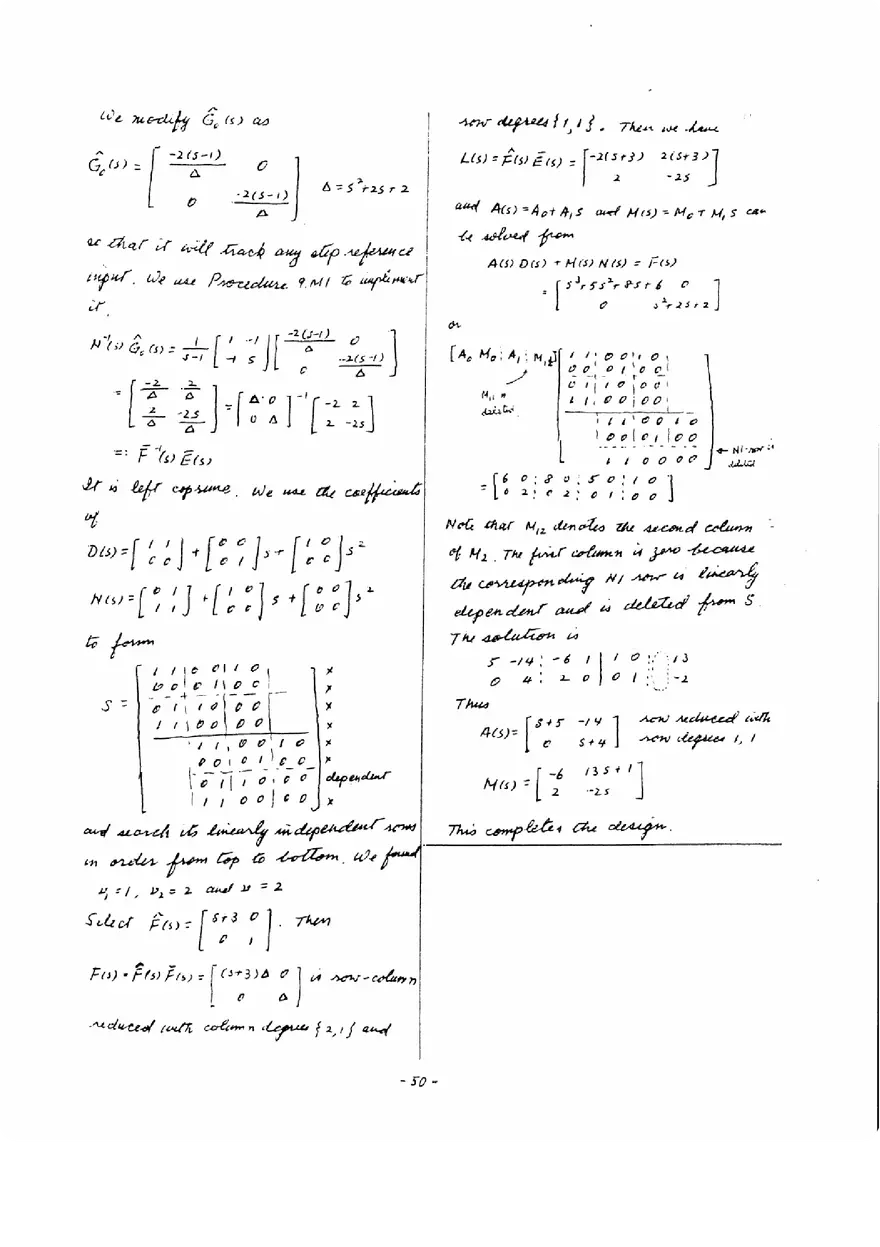 We modify Ĝ₀(s) as
Ĝ₀(s) = [ -2(s-1)/Δ  0 ; 0  -2(s-1)/Δ ]  Δ = s²+2s+2
so that it will track any step reference
input. We use Procedure 9.M1 to implement
it.
N⁻¹(s) Ĝ₀(s) = 1/(s-1) [ 1  -1 ; -1  s ] [ -2(s-1)/Δ  0 ; 0  -2(s-1)/Δ ]
= [ -2/Δ  2/Δ ; 2/Δ  -2s/Δ ] = [ Δ  0 ; 0  Δ ]⁻¹ [ -2  2 ; 2  -2s ]
=: F̄⁻¹(s) Ē(s)
It is left coprime. We use the coefficients
of
D(s) = [ 1  1 ; 0  0 ] + [ 0  0 ; 0  1 ] s + [ 1  0 ; 0  0 ] s²
N(s) = [ 0  1 ; 1  1 ] + [ 1  0 ; 0  0 ] s + [ 0  0 ; 0  0 ] s²
to form
S = [
1 1 | 0 0 | 1 0 | x
0 0 | 0 1 | 0 0 | x
0 1 | 1 0 | 0 0 x
1 1 | 0 0 | 0 0 x
1 1 | 0 0 | 1 0 x
0 0 | 0 1 | 0 0 x
0 1 | 1 0 | 0 0 dependent
1 1 | 0 0 | 0 0 ] x
and search its linearly independent rows
in order from top to bottom. We found
ν₁ = 1, ν₂ = 2 and ν = 2
Select F̂(s) = [ s+3  0 ; 0  1 ]. Then
F(s) = F̂(s) F̄(s) = [ (s+3)Δ  0 ; 0  Δ ] is row-column
reduced with column degrees {2,1} and
row degrees {1,1}. Then we have
L(s) = F̂(s) Ē(s) = [ -2(s+3)  2(s+3) ; 2  -2s ]
and A(s) = A₀ + A₁s and M(s) = M₀ + M₁s can
be solved from
A(s) D(s) + M(s) N(s) = F(s)
= [ s³+5s²+8s+6  0 ; 0  s²+2s+2 ]
or
[A₀ M₀ ⋮ A₁ ⋮ M₁₂] [
1 1 | 0 0 | 1 0 |
0 0 | 0 1 | 0 0 |
0 1 | 1 0 | 0 0 |
1 1 | 0 0 | 0 0 |
1 1 | 0 0 | 1 0
0 0 | 0 1 | 0 0
1 1 0 0 0 0 ]
M₁₁ is
deleted.
← N1-row is
deleted
= [ 6 0 ⋮ 8 0 ⋮ 5 0 ⋮ 1 0 ; 0 2 ⋮ 0 2 ⋮ 0 1 ⋮ 0 0 ]
Note that M₁₂ denotes the second column
of M₁. The first column is zero because
the corresponding N1 row is linearly
dependent and is deleted from S.
The solution is
5 -14 ⋮ -6 1 | 1 0 ⋮ ⋮ 13
0 4 ⋮ 2 0 | 0 1 ⋮ ⋮ -2
Thus
A(s) = [ s+5  -14 ; 0  s+4 ] row reduced with
row degrees 1, 1
M(s) = [ -6  13s+1 ; 2  -2s ]
This completes the design.
- 50 -